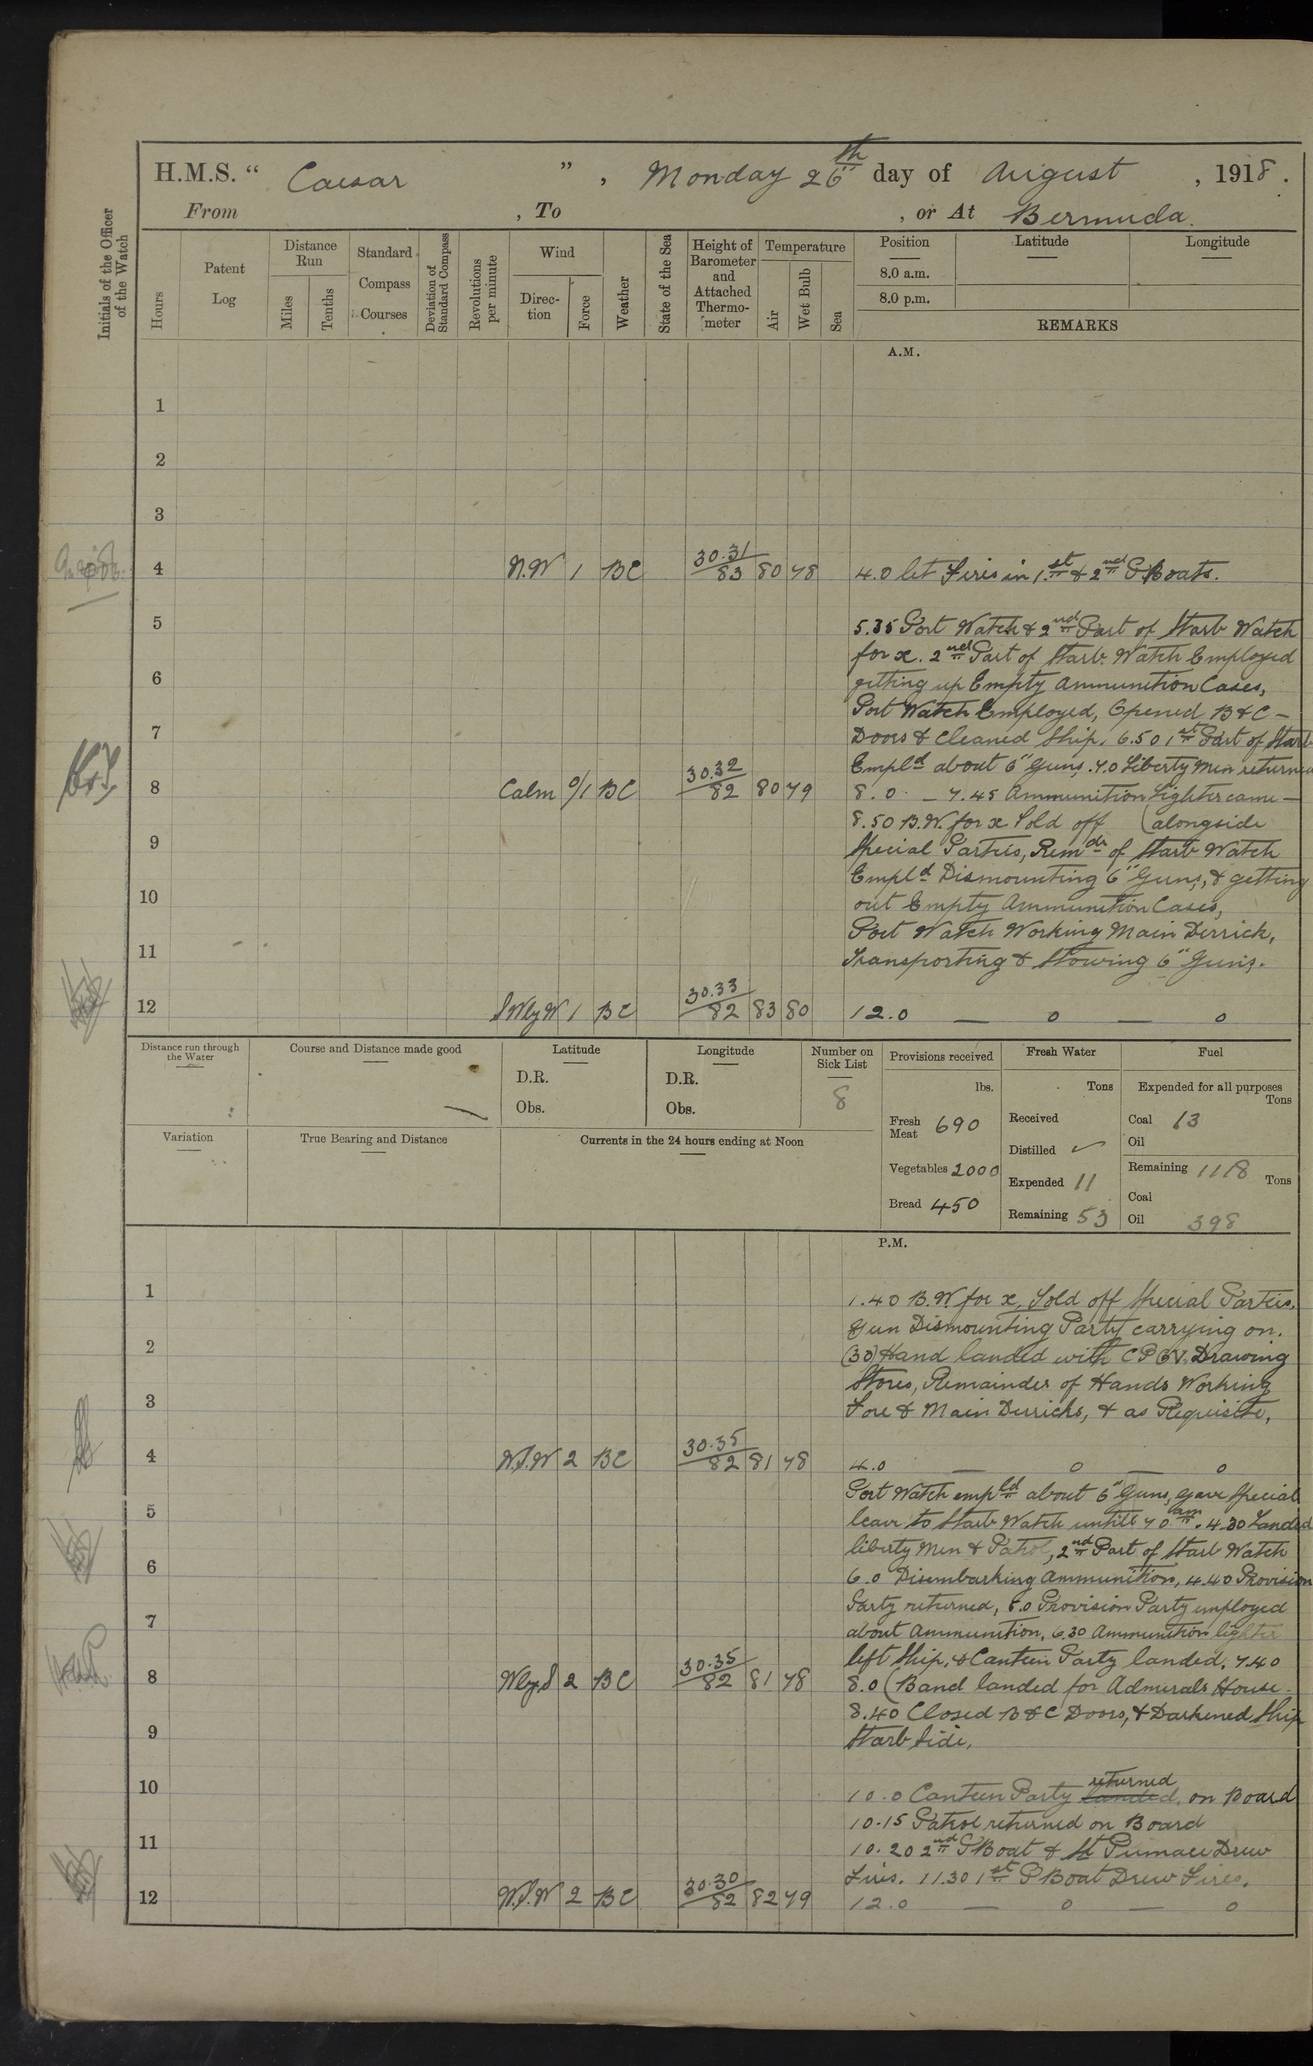 H.M.S. “ Caesar ” , Monday 26th day of August , 1918.
From , To , or At Bermuda.
Initials of the Officer of the Watch
Hours
Patent Log
Distance Run
Miles
Tenths
Standard Compass Courses
Deviation of Standard Compass
Revolutions per minute
Wind
Direction
Force
Weather
State of the Sea
Height of Barometer and Attached Thermometer
Temperature
Air
Wet Bulb
Sea
Position Latitude Longitude
8.0 a.m.
8.0 p.m.
REMARKS
A.M.
1
2
3
4 N.W 1 BC 30.31/83 80 78 4.0 let Fires in 1st & 2nd P Boats.
5 5.35 Port Watch & 2nd Part of Starb Watch
for x. 2nd Part of Starb. Watch Employed
6 getting up Empty Ammunition Cases,
Port Watch Employed, Opened B & C –
7 Doors & Cleaned Ship, 6.50 1st Part of Starb
Empld about 6" Guns. 7.0 Liberty Men returned
8 Calm 0/1 BC 30.32/82 80 79 8.0 – 7.45 Ammunition Lighter came –
8.50 B.W. for x Told off (alongside
9 Special Parties, Remdr of Starb Watch
Empld Dismounting 6" Guns, & getting
10 out Empty Ammunition Cases,
Port Watch Working Main Derrick,
11 Transporting & Stowing 6" Guns.
12 SWlyW 1 BC 30.33/82 83 80 12.0 — o — o
Distance run through the Water
Course and Distance made good
Latitude
D.R.
Obs.
Longitude
D.R.
Obs.
Number on Sick List
8
Provisions received
lbs.
Fresh Meat 690
Vegetables 2000
Bread 450
Fresh Water
Tons
Received
Distilled ✓
Expended 11
Remaining 53
Fuel
Expended for all purposes
Tons
Coal 13
Oil
Remaining 1118 Tons
Coal
Oil 398
Variation
True Bearing and Distance
Currents in the 24 hours ending at Noon
P.M.
1 1.40 B.W. for x, Told off Special Parties,
Gun Dismounting Party carrying on.
2 (30) Hand landed with CPOV. Drawing
Stores, Remainder of Hands Working
3 Fore & Main Derricks, & as Requisite,
4 W.S.W 2 BC 30.35/82 81 78 4.0 — o — o
Port Watch empld about 6" Guns, gave Special
5 leave to Starb Watch untill 7 0 am. 4.30 Landed
liberty Men & Patrol, 2nd Part of Starb Watch
6 6.0 Disembarking Ammunition, 4.40 Provision
Party returned, 5.0 Provision Party employed
7 about Ammunition, 6.30 Ammunition lighter
left Ship, & Canteen Party landed. 7.40
8 Wly S 2 BC 30.35/82 81 78 8.0 (Band landed for Admirals House.
8.40 Closed B & C Doors, & Darkened Ship
9 Starb Side,
10 10.0 Canteen Party landed returned on Board
10.15 Patrol returned on Board
11 10.20 2nd P Boat & St Pinnace Drew
Fires. 11.30 1st P Boat Drew Fires.
12 W.S.W 2 BC 30.30/82 82 79 12.0 — o — o